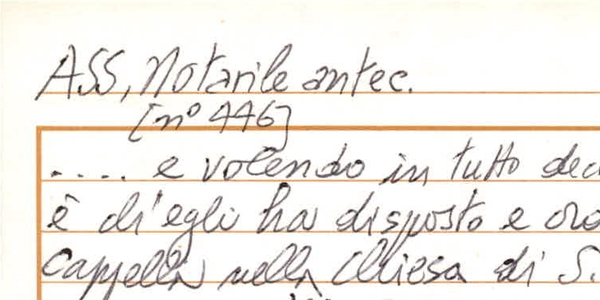 ASS, Notarile antec.
[n° 446]
.... e volendo in tutto
è ch'egli ha disposto e
Cappella nella Chiesa di S.